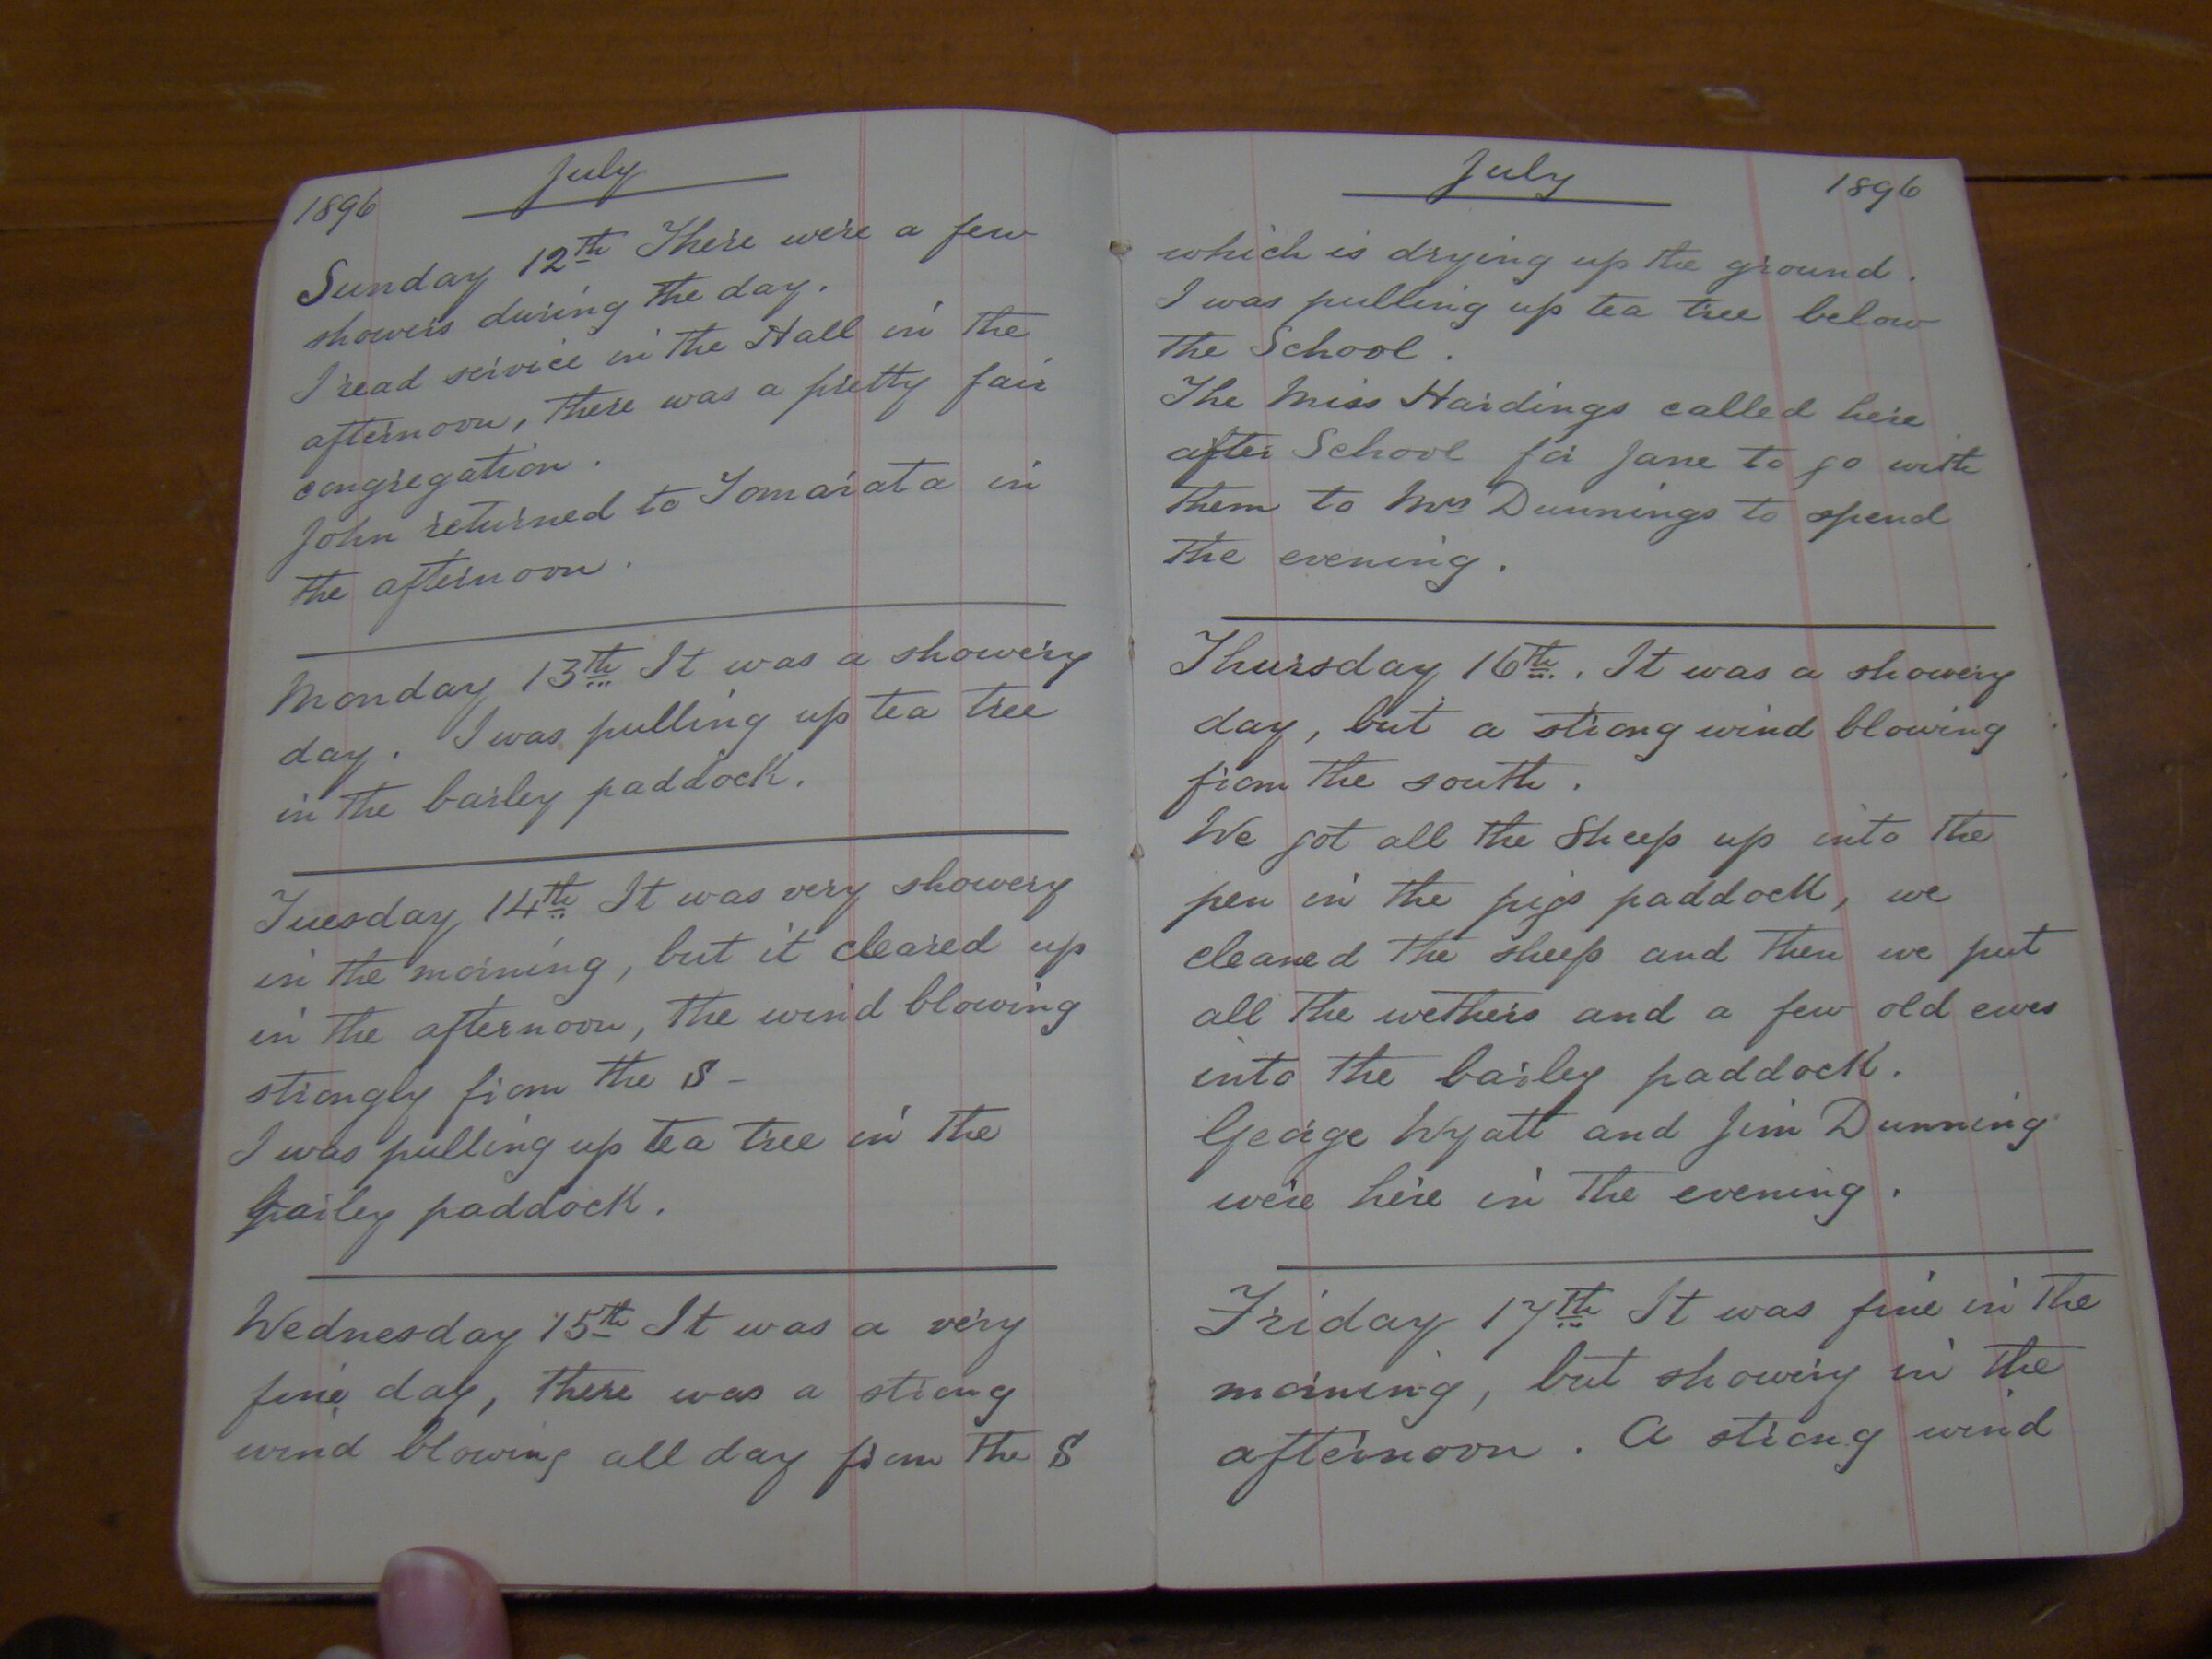 July
1896
Sunday 12th There were a few
showers during the day.
I read service in the Hall in the
afternoon, there was a pretty fair
congregation.
John returned to Tomarata in
the afternoon.
Monday 13th It was a showery
day. I was pulling up tea tree
in the barley paddock.
Tuesday 14th It was very showery
in the morning, but it cleared up
in the afternoon, the wind blowing
strongly from the S-
I was pulling up tea tree in the
barley paddock.
Wednesday 15th It was a very
fine day, there was a strong
wind blowing all day from the S
July
1896
which is drying up the ground.
I was pulling up tea tree below
the School.
The Miss Hardings called here
after School for Jane to go with
them to Mrs Dunnings to spend
the evening.
Thursday 16th. It was a showery
day, but a strong wind blowing
from the south.
We got all the Sheep up into the
pen in the pigs paddock, we
cleaned the sheep and then we put
all the wethers and a few old ewes
into the barley paddock.
George Wyatt and Jim Dunning
were here in the evening.
Friday 17th It was fine in the
morning, but showery in the
afternoon. A strong wind